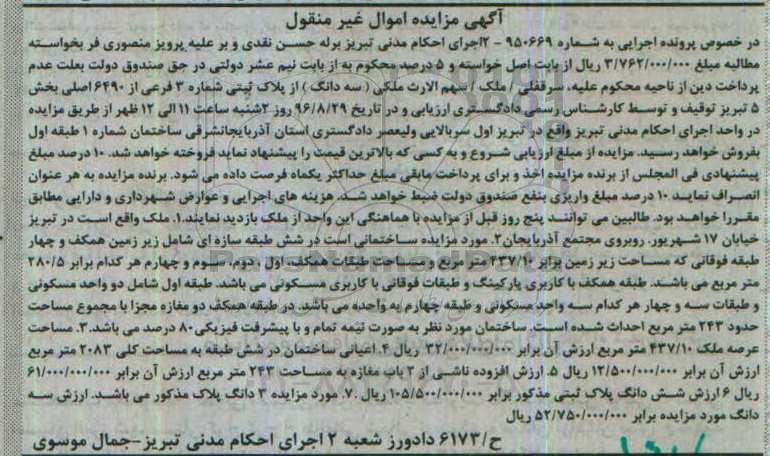 آگهی مزایده اموال غیر منقول
در خصوص پرونده اجرایی به شماره ۹۵۰۶۶۹ - ۲اجرای احکام مدنی تبریز برله حسن نقدی و بر علیه پرویز منصوری فر بخواسته
مطالبه مبلغ ۳/۷۶۲/۰۰۰/۰۰۰ ریال از بابت اصل خواسته و ۵ درصد محکوم به از بابت نیم عشر دولتی در حق صندوق دولت بعلت عدم
پرداخت دین از ناحیه محکوم علیه، سرقفلی / ملک / سهم الارث ملکی ( سه دانگ ) از پلاک ثبتی شماره ۳ فرعی از ۶۴۹۰ اصلی بخش
۵ تبریز توقیف و توسط کارشناس رسمی دادگستری ارزیابی و در تاریخ ۹۶/۸/۲۹ روز ۲شنبه ساعت ۱۱ الی ۱۲ ظهر از طریق مزایده
در واحد اجرای احکام مدنی تبریز واقع در تبریز اول سربالایی ولیعصر دادگستری استان آذربایجانشرقی ساختمان شماره ۱ طبقه اول
بفروش خواهد رسید. مزایده از مبلغ ارزیابی شروع و به کسی که بالاترین قیمت را پیشنهاد نماید فروخته خواهد شد. ۱۰ درصد مبلغ
پیشنهادی فی المجلس از برنده مزایده اخذ و برای پرداخت مابقی مبلغ حداکثر یکماه فرصت داده می شود. برنده مزایده به هر عنوان
انصراف نماید ۱۰ درصد مبلغ واریزی بنفع صندوق دولت ضبط خواهد شد. هزینه های اجرایی و عوارض شهرداری و دارایی مطابق
مقررا خواهد بود. طالبین می توانند پنج روز قبل از مزایده با هماهنگی این واحد از ملک بازدید نمایند.۱. ملک واقع است در تبریز
خیابان ۱۷ شهریور، روبروی مجتمع آذربایجان۲. مورد مزایده ساختمانی است در شش طبقه سازه ای شامل زیر زمین همکف و چهار
طبقه فوقانی که مساحت زیر زمین برابر ۴۳۷/۱۰ متر مربع و مساحت طبقات همکف، اول، دوم، سوم و چهارم هر کدام برابر ۲۸۰/۵
متر مربع می باشد. طبقه همکف با کاربری پارکینگ و طبقات فوقانی با کاربری مسکونی می باشد. طبقه اول شامل دو واحد مسکونی
و طبقات سه و چهار هر کدام سه واحد مسکونی و طبقه چهارم یه واحده می باشد. در طبقه همکف دو مغازه مجزا با مجموع مساحت
حدود ۲۴۳ متر مربع احداث شده است. ساختمان مورد نظر به صورت نیمه تمام و با پیشرفت فیزیکی ۸۰ درصد می باشد.۳. مساحت
عرصه ملک ۴۳۷/۱۰ متر مربع ارزش آن برابر ۳۲/۰۰۰/۰۰۰/۰۰۰ ریال ۴. اعیانی ساختمان در شش طبقه به مساحت کلی ۲۰۸۳ متر مربع
ارزش آن برابر ۱۲/۵۰۰/۰۰۰/۰۰۰ ریال ۵. ارزش افزوده ناشی از ۳ باب مغازه به مساحت ۲۴۳ متر مربع ارزش آن برابر ۶۱/۰۰۰/۰۰۰/۰۰۰
ریال ۶ ارزش شش دانگ پلاک ثبتی مذکور برابر ۱۰۵/۵۰۰/۰۰۰/۰۰۰ ریال .۷. مورد مزایده ۳ دانگ پلاک مذکور می باشد. ارزش سه
دانگ مورد مزایده برابر ۵۲/۷۵۰/۰۰۰/۰۰۰ ریال
ح/۶۱۷۳ دادورز شعبه ۲ اجرای احکام مدنی تبریز-جمال موسوی